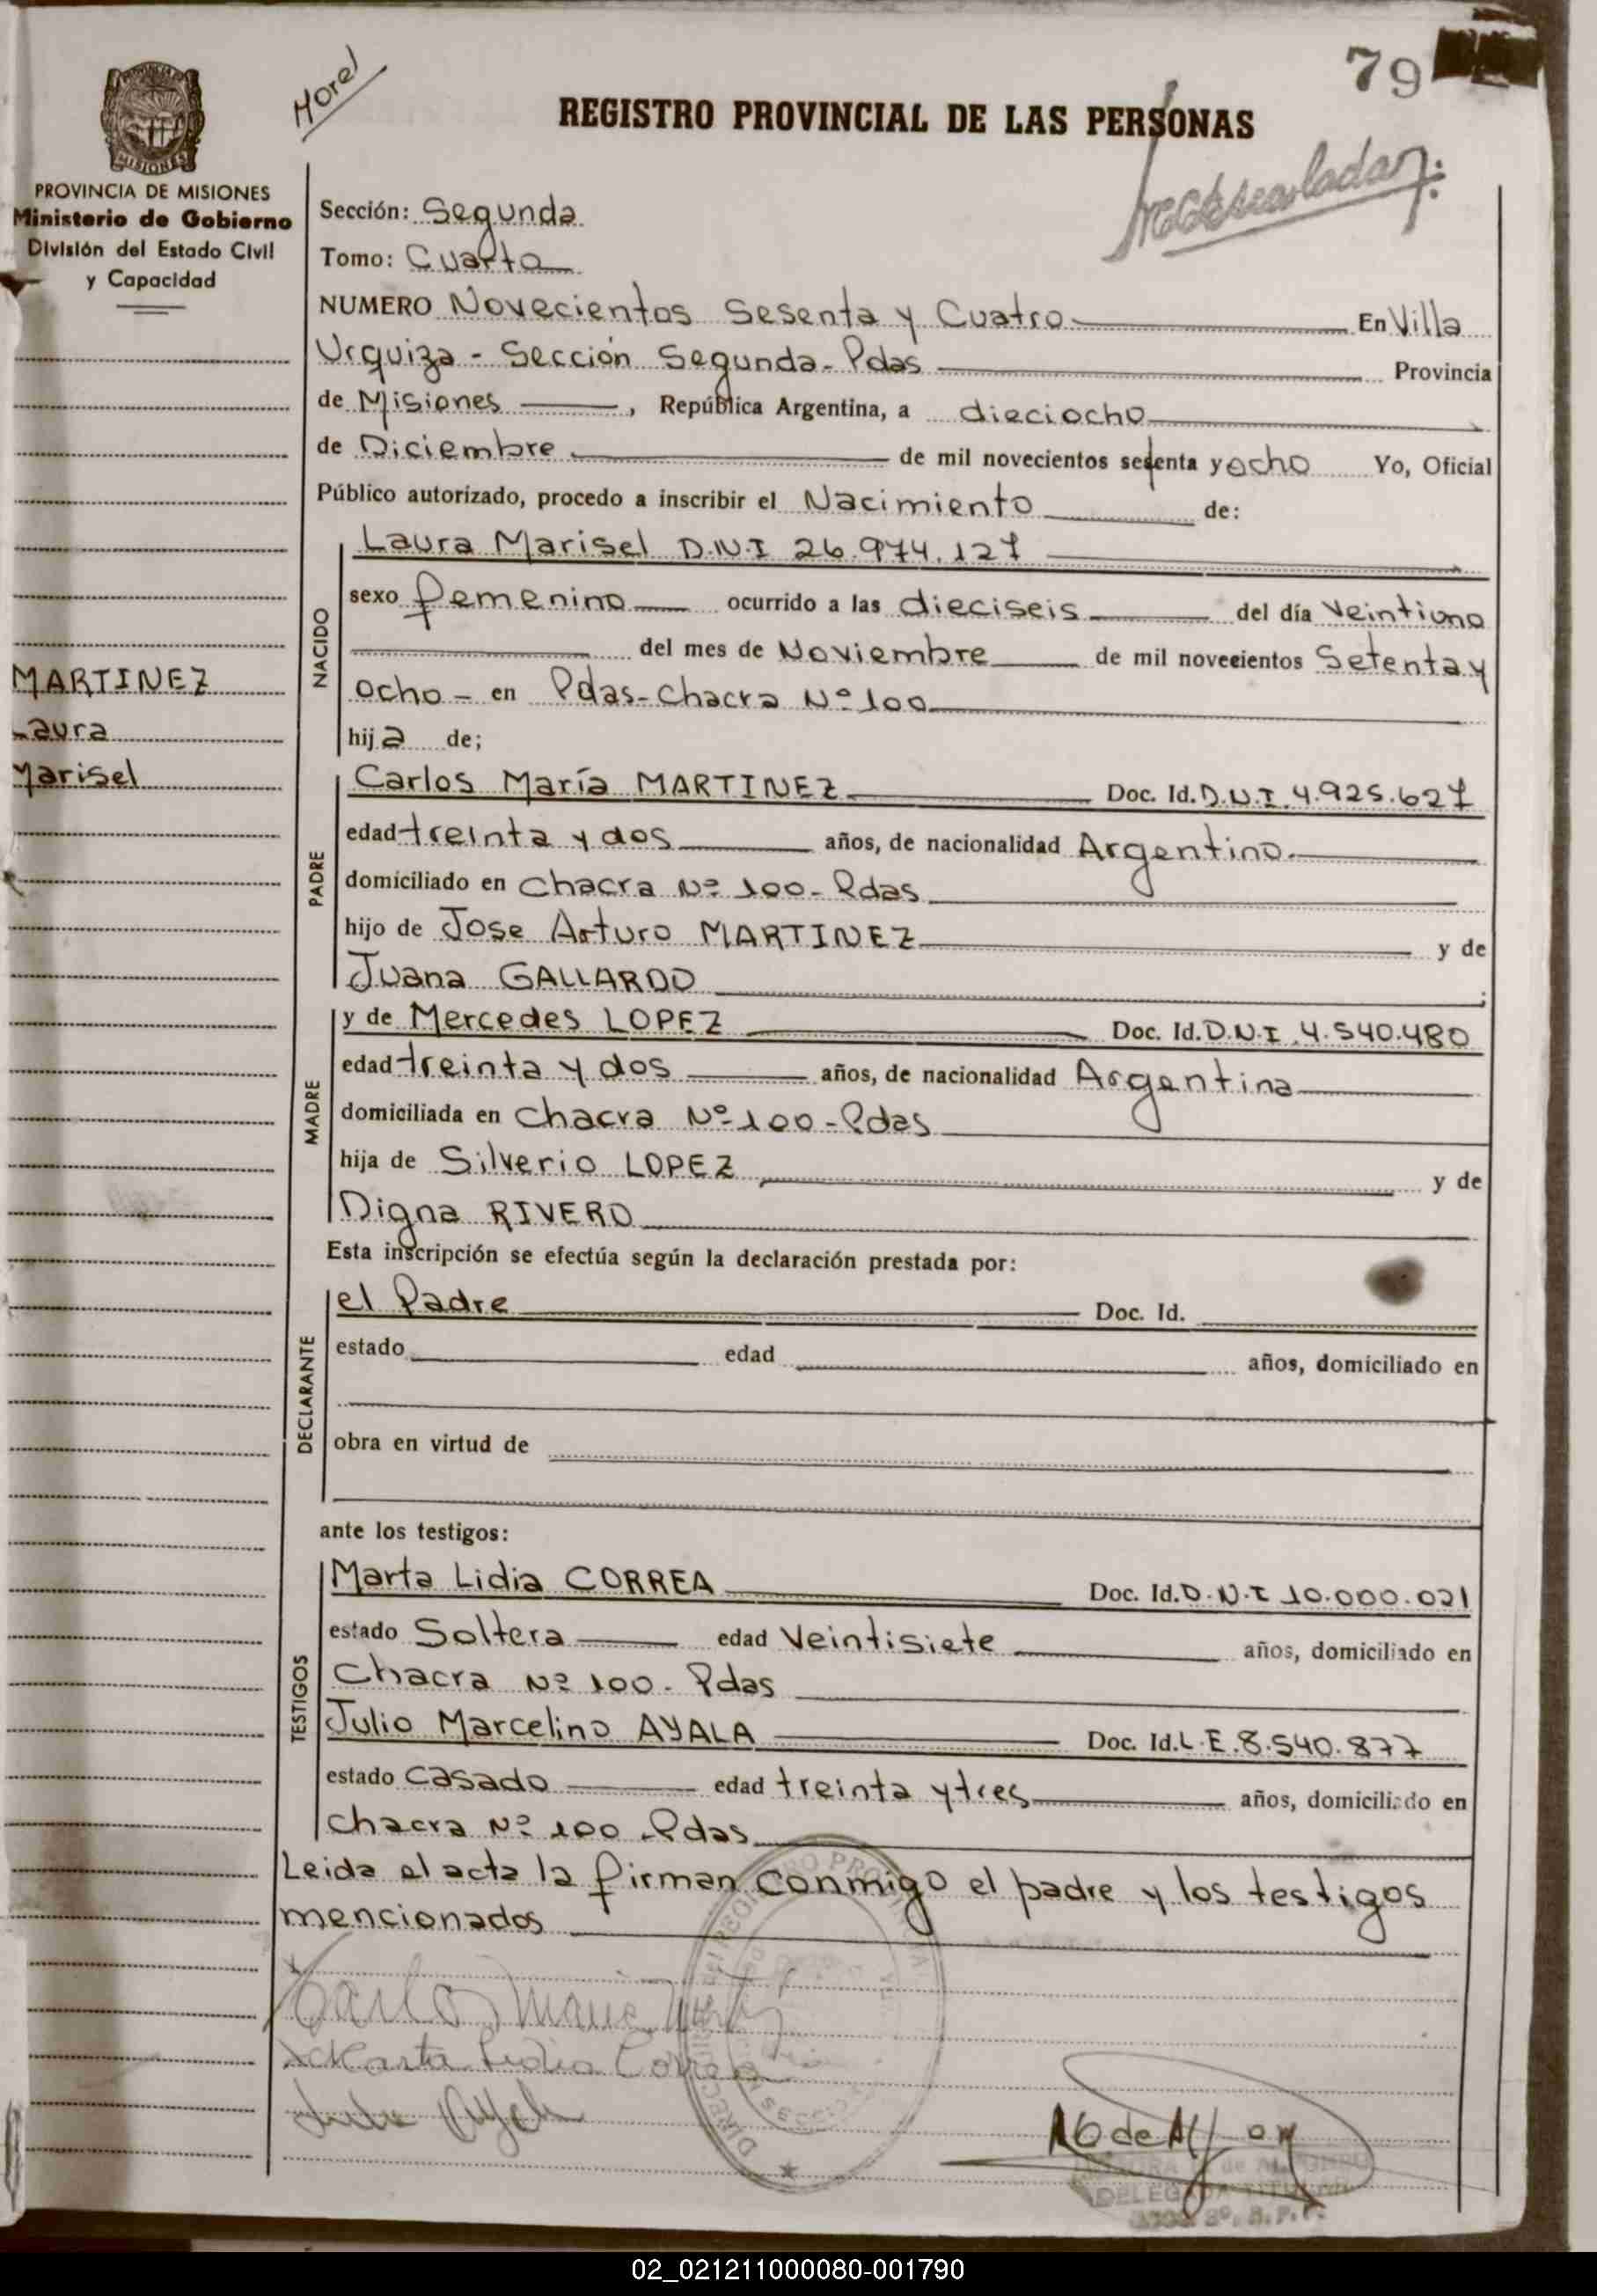 79
Morel
REGISTRO PROVINCIAL DE LAS PERSONAS
MISIONES
PROVINCIA DE MISIONES
Ministerio de Gobierno
División del Estado Civil
y Capacidad
Sección: Segunda
Tomo: Cuarto
NUMERO Novecientos Sesenta y Cuatro En Villa
Urquiza - Sección Segunda - Pdas Provincia
de Misiones, República Argentina, a dieciocho
de Diciembre de mil novecientos setenta y ocho Yo, Oficial
Público autorizado, procedo a inscribir el Nacimiento de:
NACIDO
Laura Marisel D.N.I 26.974.127
sexo femenino ocurrido a las dieciseis del día veintiuno
del mes de Noviembre de mil novecientos Setenta y
ocho - en Pdas - Chacra Nº 100
hija de;
MARTINEZ
Laura
Marisel
PADRE
Carlos María MARTINEZ Doc. Id. D.N.I. 4.925.627
edad treinta y dos años, de nacionalidad Argentino.
domiciliado en Chacra Nº 100 - Pdas
hijo de Jose Arturo MARTINEZ y de
Juana GALLARDO;
MADRE
y de Mercedes LOPEZ Doc. Id. D.N.I. 4.540.480
edad treinta y dos años, de nacionalidad Argentina
domiciliada en Chacra Nº 100 - Pdas
hija de Silverio LOPEZ y de
Digna RIVERO
Esta inscripción se efectúa según la declaración prestada por:
DECLARANTE
el Padre Doc. Id.
estado edad años, domiciliado en
obra en virtud de
ante los testigos:
TESTIGOS
Marta Lidia CORREA Doc. Id. D.N.I 10.000.021
estado Soltera edad Veintisiete años, domiciliado en
Chacra Nº 100 - Pdas
Julio Marcelino AYALA Doc. Id. L.E. 8.540.877
estado Casado edad treinta y tres años, domiciliado en
Chacra Nº 100 - Pdas
Leida el acta la firman conmigo el padre y los testigos
mencionados
Carlos Maria
Marta Lidia Correa
DELEGADA TITULAR
02_021211000080-001790